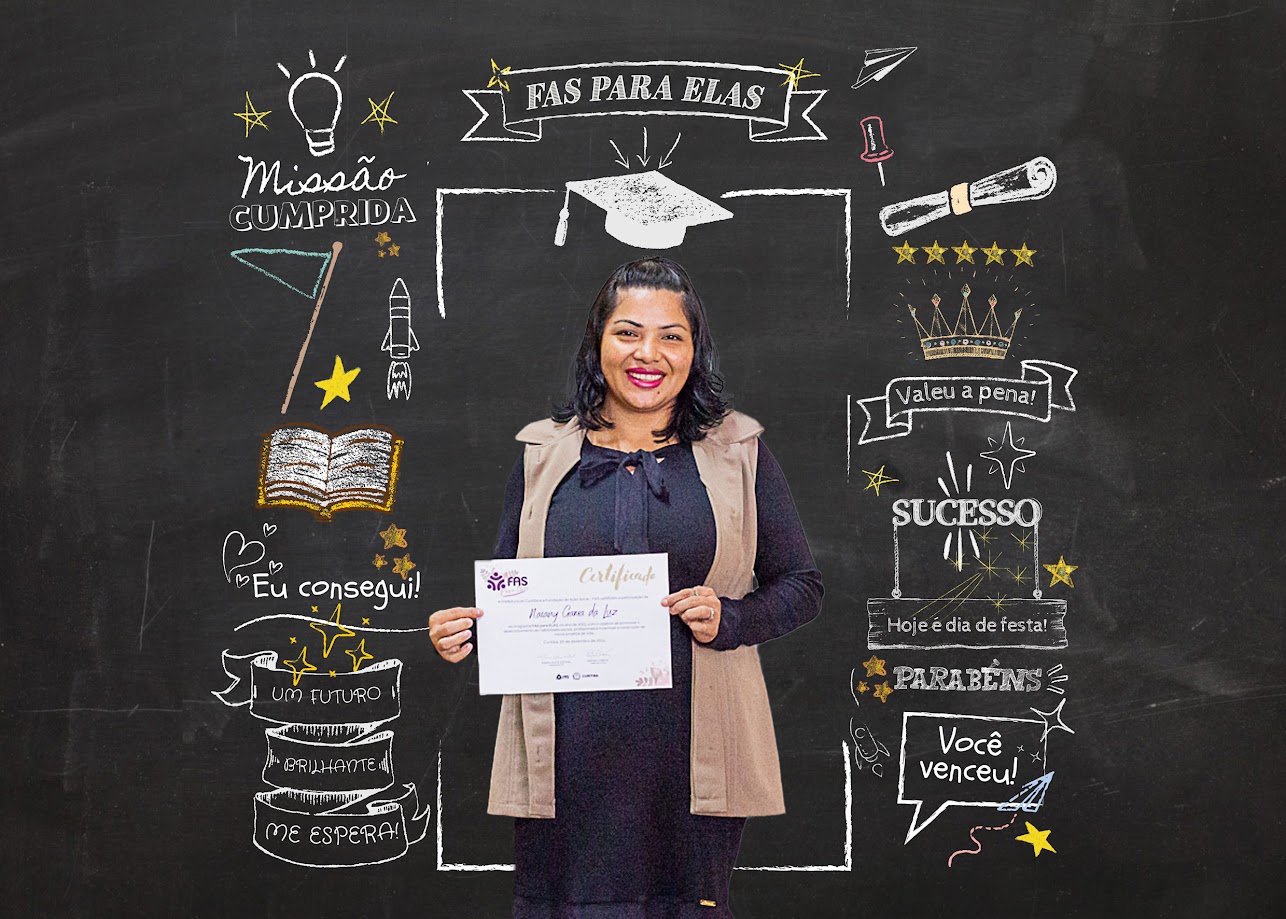 FAS PARA ELAS
Missão
CUMPRIDA
Eu consegui!
UM FUTURO
BRILHANTE
ME ESPERA!
Valeu a pena!
SUCESSO
Hoje é dia de festa!
PARABÉNS
Você
venceu!
FAS
Certificado
da Luz
CURITIBA